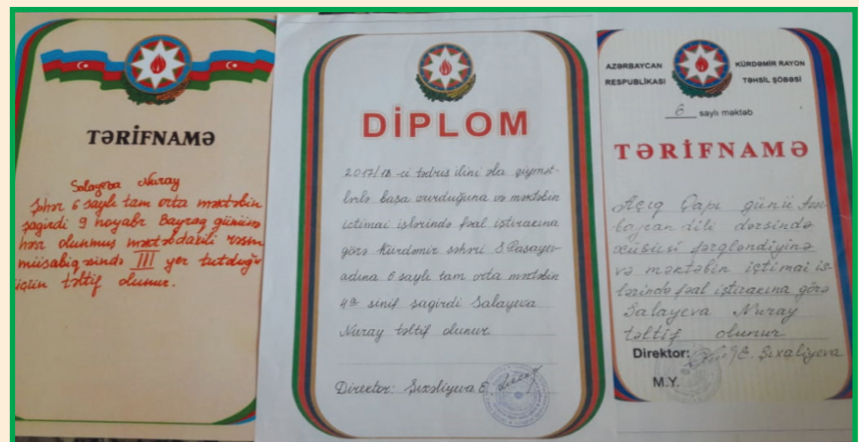 TƏRİFNAMƏ
Salayeva Nuray
Şəhər 6 saylı tam orta məktəbin
şagirdi 9 noyabr Bayraq gününə
həsr olunmuş məktəbdaxili rəsm
müsabiqəsində III yer tutduğu
üçün təltif olunur.
DİPLOM
2017/18-ci tədris ilini əla qiymət-
lərlə başa vurduğuna və məktəbin
ictimai işlərində fəal iştirakına
görə Kürdəmir şəhəri S.Paşayev
adına 6 saylı tam orta məktəbin
sinif şagirdi Salayeva
Nuray təltif olunur
Direktor: Şıxəliyeva E
AZƏRBAYCAN
RESPUBLİKASI
KÜRDƏMİR RAYON
TƏHSİL ŞÖBƏSİ
6 saylı məktəb
TƏRİFNAMƏ
Açıq Qapı günü Azər-
baycan dili dərsində
xüsusi fərqləndiyinə
və məktəbin ictimai iş-
lərində fəal iştirakına görə
Salayeva Nuray
təltif olunur
Direktor: E. Şıxəliyeva
M.Y.